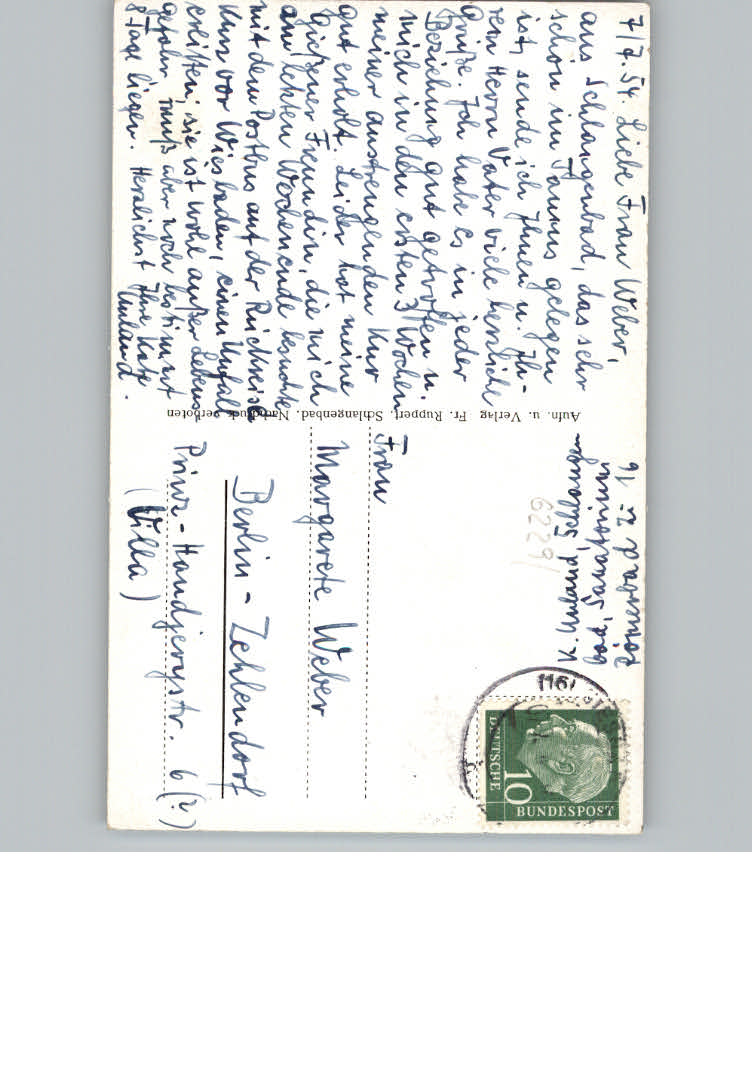 7/7.54. Liebe Frau Weber,
aus Schlangenbad, das sehr
schön im Taunus gelegen
ist, sende ich Ihnen u. Ih-
rem Herrn Vater viele herzliche
Grüße. Ich habe es in jeder
Beziehung gut getroffen u.
mich in den ersten 3 Wochen
meiner anstrengenden Kur
gut erholt. Leider hat meine
Gießener Freundin, die mich
am letzten Wochenende besuchte
mit dem Postbus auf der Rückreise
kurz vor Wiesbaden, einen Unfall
erlitten, sie ist wohl außer Lebens
gefahr, muß aber noch bestimmt
8 Tage liegen. Herzlichst Ihre Käte
Umland.
Aufn. u. Verlag Fr. Ruppert, Schlangenbad. Nachdruck verboten
K. Umland, Schlangen
bad, Sanatorium
62291
(16)
DEUTSCHE
10
BUNDESPOST
Frau
Margarete Weber
Berlin-Zehlendorf
Prinz-Handjerystr. 6 (?)
(Villa)